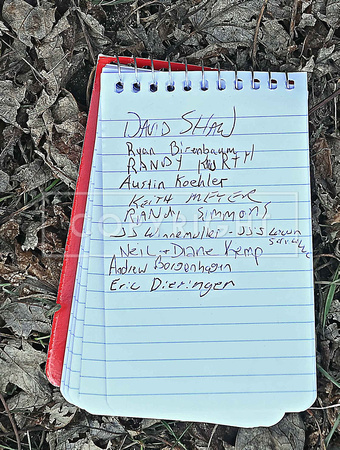 DAVID SHAW
Ryan Birenbaum
RANDY KURTH
Austin Koehler
KEITH MEYER
RANDY SIMMONS
JJ Winnemuller - JJ's Lawn Service LLC
Neil + Diane Kemp
Andrew Borgenhagen
Eric Dieringer